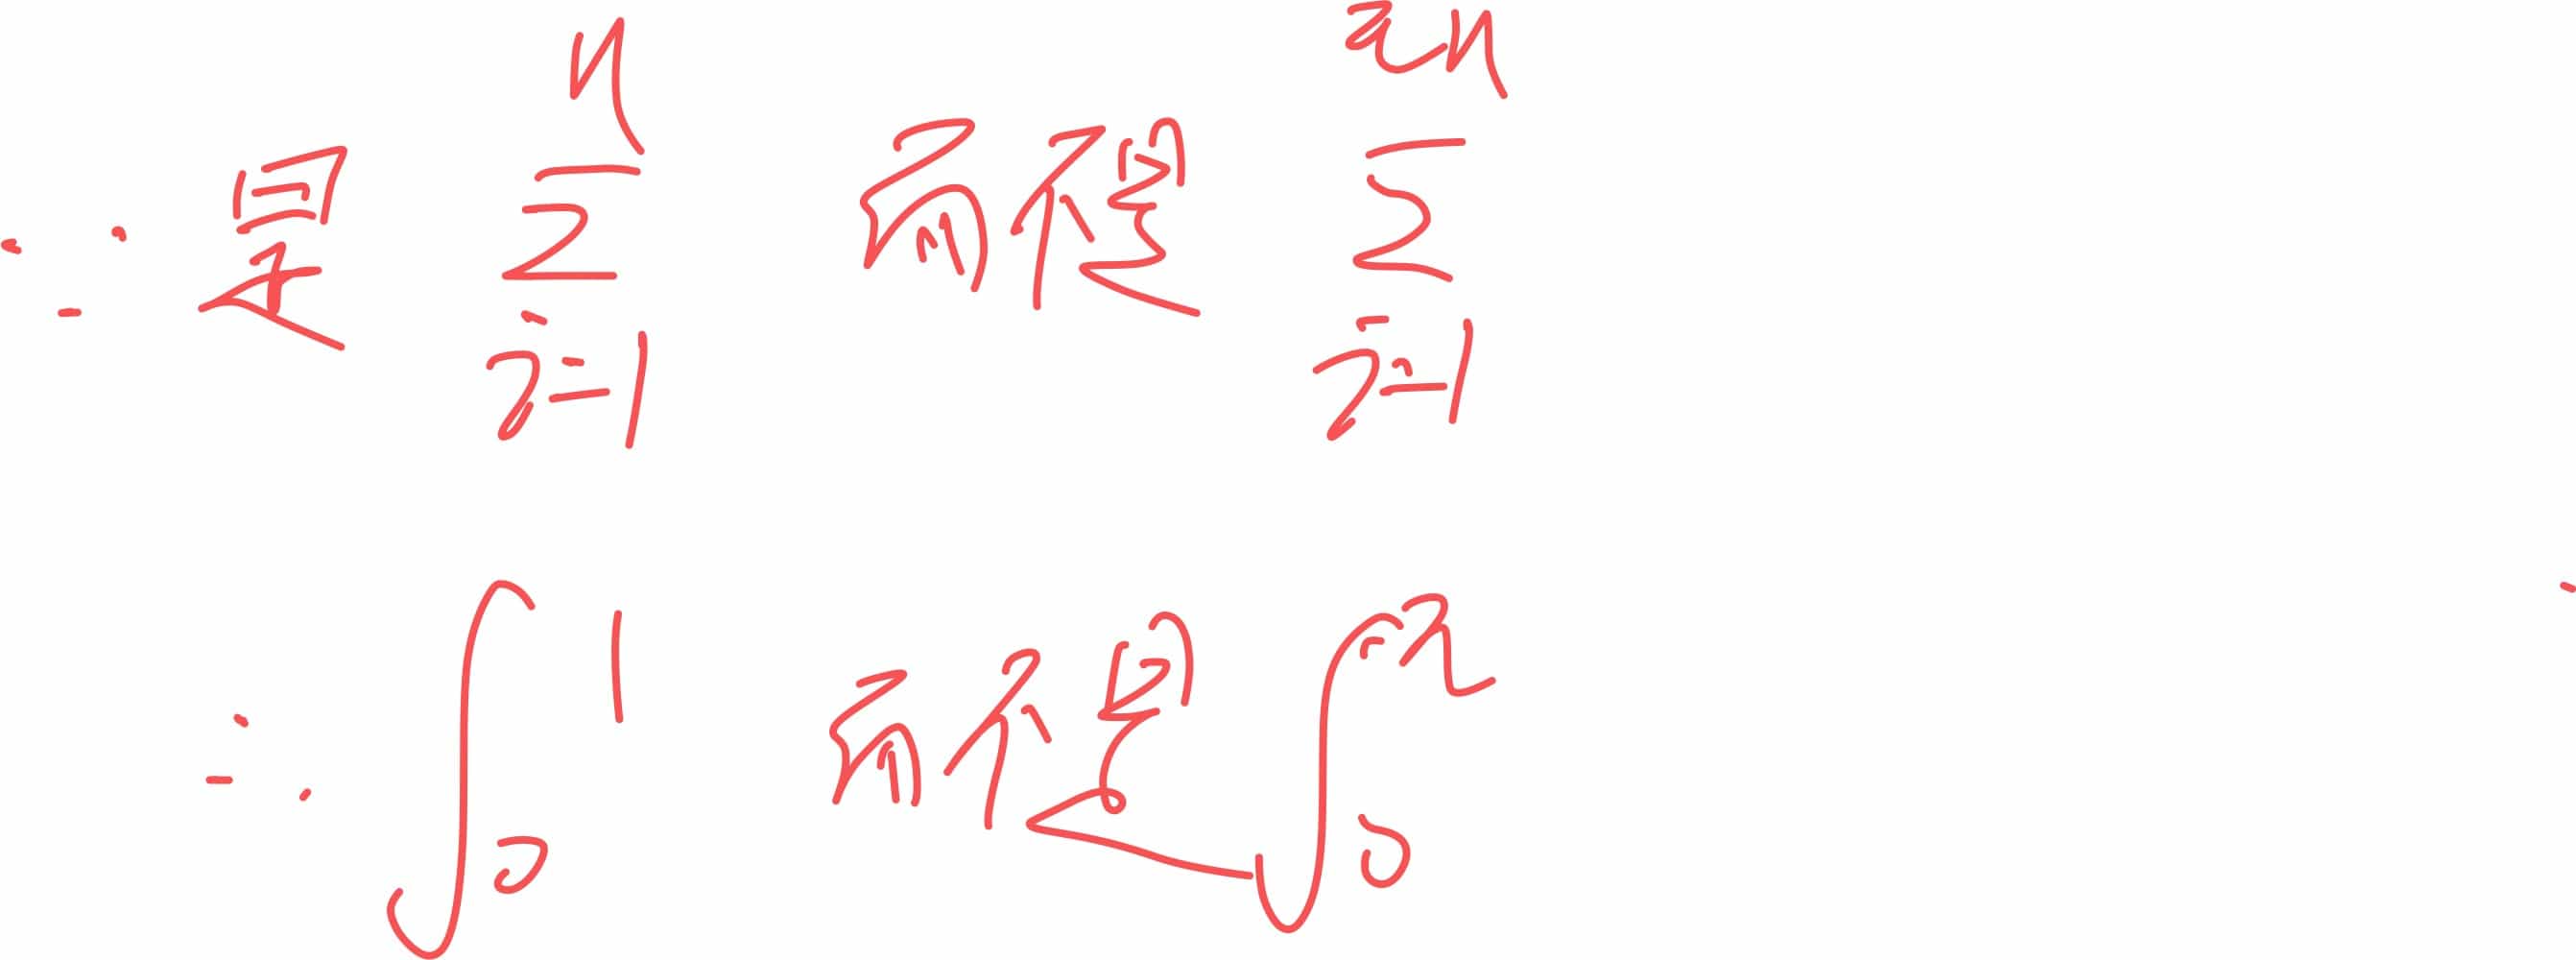 ∵ 是 \sum_{i=1}^{n} 而不是 \sum_{i=1}^{2n}
∴ \int_0^1 而不是 \int_0^2